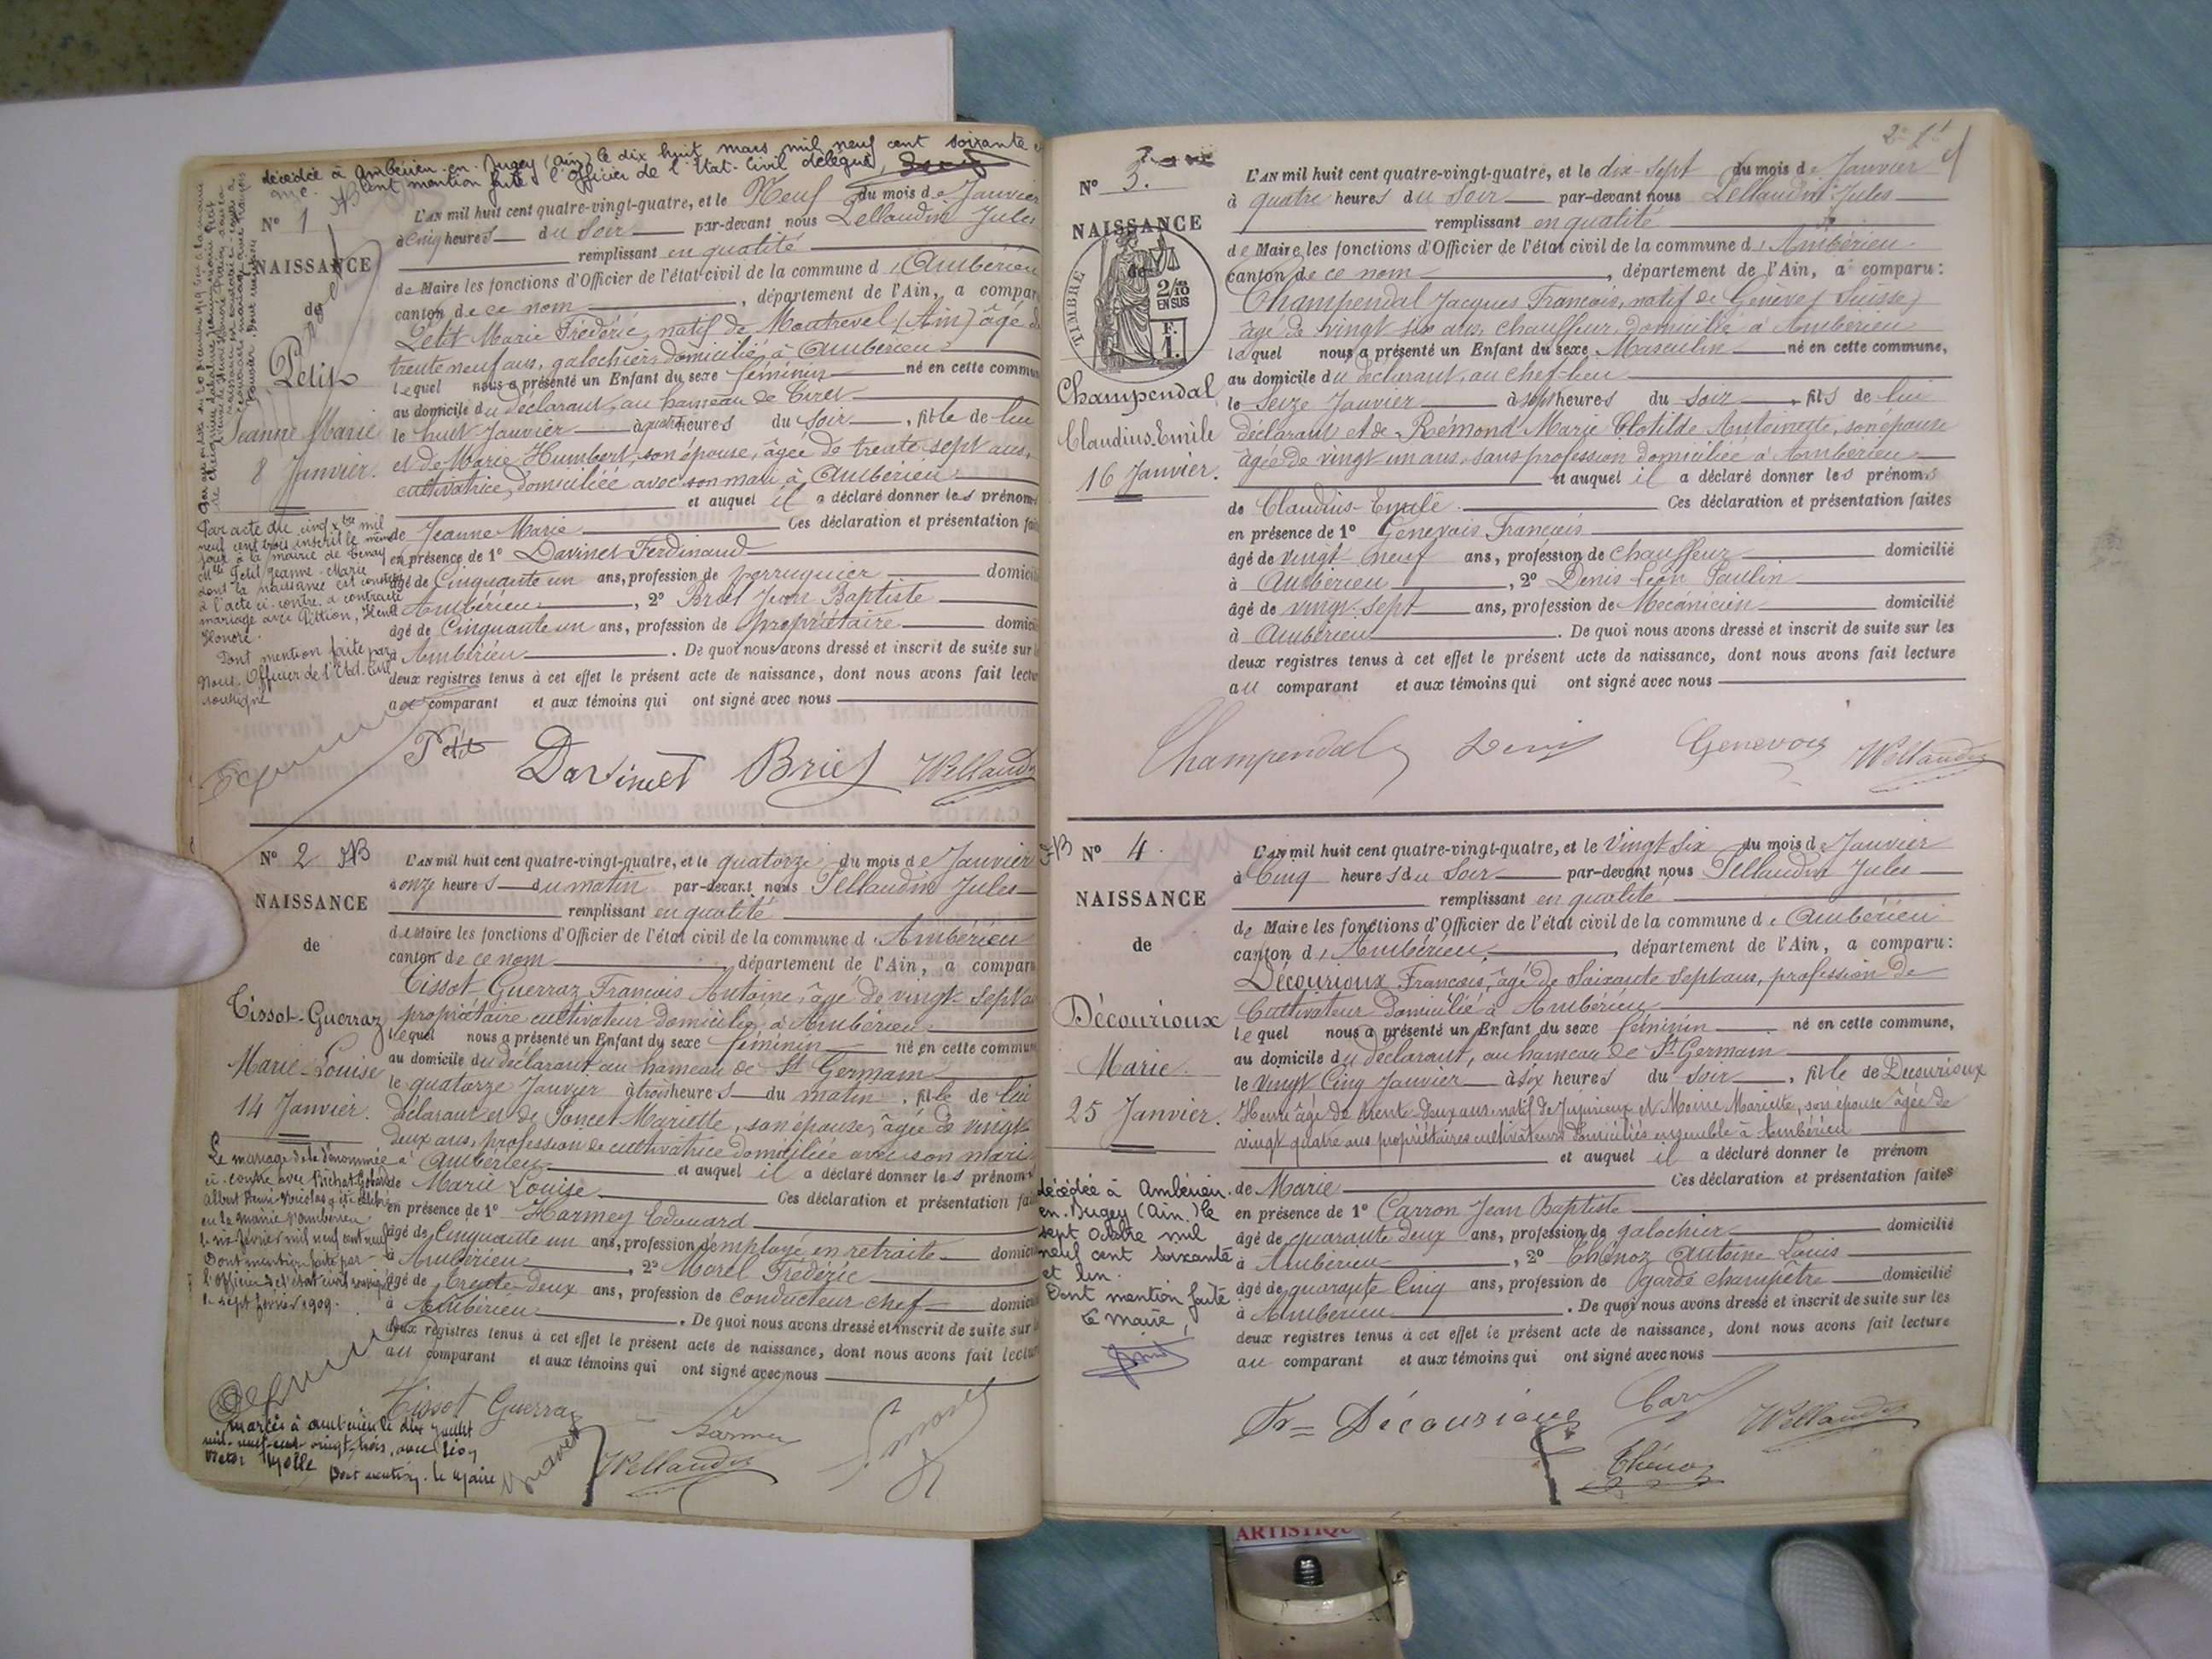 décédée à Ambérieu-en-Bugey (Ain) le dix huit mars mil neuf cent soixante et
une. Dont mention faite l'Officier de l'Etat-Civil délégué,
N° 1
NAISSANCE
de
Petit
Jeanne Marie
8 Janvier.
L'AN mil huit cent quatre-vingt-quatre, et le Neuf du mois de Janvier
à cinq heures du Soir par-devant nous Pellaudin Jules
remplissant en qualité
de Maire les fonctions d'Officier de l'état-civil de la commune d'Ambérieu
canton de ce nom, département de l'Ain, a compar
Petit Marie Frédéric, natif de Montrevel (Ain) âgé de
trente neuf ans, galochier, domicilié à Ambérieu
lequel nous a présenté un Enfant du sexe féminin né en cette commun
au domicile du déclarant, au hameau de Tiret
le huit Janvier à quatre heures du Soir, fille de lui
et de Marie Humbert, son épouse, âgée de trente-sept ans,
cultivatrice, domiciliée avec son mari à Ambérieu
et auquel il a déclaré donner les prénoms
de Jeanne Marie Ces déclaration et présentation fai
en présence de 1° Davinet Ferdinand
âgé de Cinquante un ans, profession de perruquier domicili
Ambérieu, 2° Briel Jean Baptiste
âgé de Cinquante un ans, profession de propriétaire domici
à Ambérieu. De quoi nous avons dressé et inscrit de suite sur
deux registres tenus à cet effet le présent acte de naissance, dont nous avons fait lectu
au comparant et aux témoins qui ont signé avec nous
Par acte du cinq Xbre mil
neuf cent trois inscrit le même
jour à la mairie de Tenay
Mlle Petit Jeanne-Marie
dont la naissance est constatée
à l'acte ci-contre a contracté
mariage avec Pittion, Henri
Honoré.
Dont mention faite par
Nous, Officier de l'Etat-Civil
soussigné
Petit Davinet Briel Pellaudin
N° 2
NAISSANCE
de
Tissot-Guerraz
Marie-Louise
14 Janvier.
L'AN mil huit cent quatre-vingt-quatre, et le quatorze du mois de Janvier
à onze heures du matin par-devant nous Pellaudin Jules
remplissant en qualité
de Maire les fonctions d'Officier de l'état civil de la commune d'Ambérieu
canton de ce nom, département de l'Ain, a comparu
Tissot-Guerraz François Antoine, âgé de vingt-sept ans
propriétaire cultivateur domicilié à Ambérieu
lequel nous a présenté un Enfant du sexe féminin né en cette commun
au domicile du déclarant au hameau de St Germain
le quatorze Janvier à trois heures du matin, fille de lui
déclarant et de Poncet Mariette, son épouse, âgée de vingt
deux ans, profession de cultivatrice domiciliée avec son mari
à Ambérieu et auquel il a déclaré donner les prénoms
de Marie Louise Ces déclaration et présentation fai
en présence de 1° Harmey Edouard
âgé de Cinquante un ans, profession d'employé en retraite domici
à Ambérieu, 2° Morel Frédéric
âgé de Trente-deux ans, profession de Conducteur chef domici
à Ambérieu. De quoi nous avons dressé et inscrit de suite sur
deux registres tenus à cet effet le présent acte de naissance, dont nous avons fait lectu
au comparant et aux témoins qui ont signé avec nous
Le mariage de la dénommée
ci-contre avec
en la mairie d'Ambérieu
le six février mil neuf cent neuf
Dont mention faite par
l'Officier de l'état civil soussigné
le sept février 1909.
Tissot Guerraz
Pellaudin
Mariée à Ambérieu le dix juillet
mil-neuf-cent-vingt-trois, avec Léon
Victor Dont mention. Le Maire
2e ft
N° 3.
NAISSANCE
de
TIMBRE
2/10
EN SUS
F.
1.
Champendal
Claudius-Emile
16 Janvier.
L'AN mil huit cent quatre-vingt-quatre, et le dix-sept du mois de Janvier
à quatre heures du Soir par-devant nous Pellaudin Jules
remplissant en qualité
de Maire les fonctions d'Officier de l'état civil de la commune d'Ambérieu
canton de ce nom, département de l'Ain, a comparu:
Champendal Jacques François, natif de Genève (Suisse)
âgé de vingt six ans, chauffeur, domicilié à Ambérieu
lequel nous a présenté un Enfant du sexe Masculin né en cette commune,
au domicile du déclarant, au chef-lieu
le Seize Janvier à sept heures du Soir, fils de lui
déclarant et de Rémond Marie Clotilde Antoinette, son épouse
âgée de vingt un ans, sans profession domiciliée à Ambérieu
et auquel il a déclaré donner les prénoms
de Claudius-Emile Ces déclaration et présentation faites
en présence de 1° Genevois François
âgé de vingt neuf ans, profession de chauffeur domicilié
à Ambérieu, 2° Denis Léon Paulin
âgé de vingt-sept ans, profession de Mécanicien domicilié
à Ambérieu. De quoi nous avons dressé et inscrit de suite sur les
deux registres tenus à cet effet le présent acte de naissance, dont nous avons fait lecture
au comparant et aux témoins qui ont signé avec nous
Champendal Denis Genevois Pellaudin
N° 4.
NAISSANCE
de
Décourioux
Marie.
25 Janvier.
L'AN mil huit cent quatre-vingt-quatre, et le Vingt Six du mois de Janvier
à Cinq heures du Soir par-devant nous Pellaudin Jules
remplissant en qualité
de Maire les fonctions d'Officier de l'état civil de la commune d'Ambérieu
canton d'Ambérieu, département de l'Ain, a comparu:
Décourioux François, âgé de Soixante Sept ans, profession de
Cultivateur domicilié à Ambérieu
lequel nous a présenté un Enfant du sexe féminin né en cette commune,
au domicile du déclarant, au hameau de St Germain
le Vingt Cinq Janvier à Six heures du Soir, fille de Decourioux
Henri âgé de trente deux ans natif de Jujurieux et Moine Mariette, son épouse âgée de
vingt quatre ans propriétaires cultivateurs domiciliés ensemble à Ambérieu
et auquel il a déclaré donner le prénom
de Marie Ces déclaration et présentation faites
en présence de 1° Carron Jean Baptiste
âgé de quarante deux ans, profession de galochier domicilié
à Ambérieu, 2° Thénoz Antoine Louis
âgé de quarante Cinq ans, profession de garde champêtre domicilié
à Ambérieu. De quoi nous avons dressé et inscrit de suite sur les
deux registres tenus à cet effet le présent acte de naissance, dont nous avons fait lecture
au comparant et aux témoins qui ont signé avec nous
décédée à Ambérieu-
en-Bugey (Ain) le
sept octobre mil
neuf cent soixante
et un.
Dont mention faite
Le maire,
Fr= Décourioux Car Pellaudin
Thénoz
ARTISTIQU